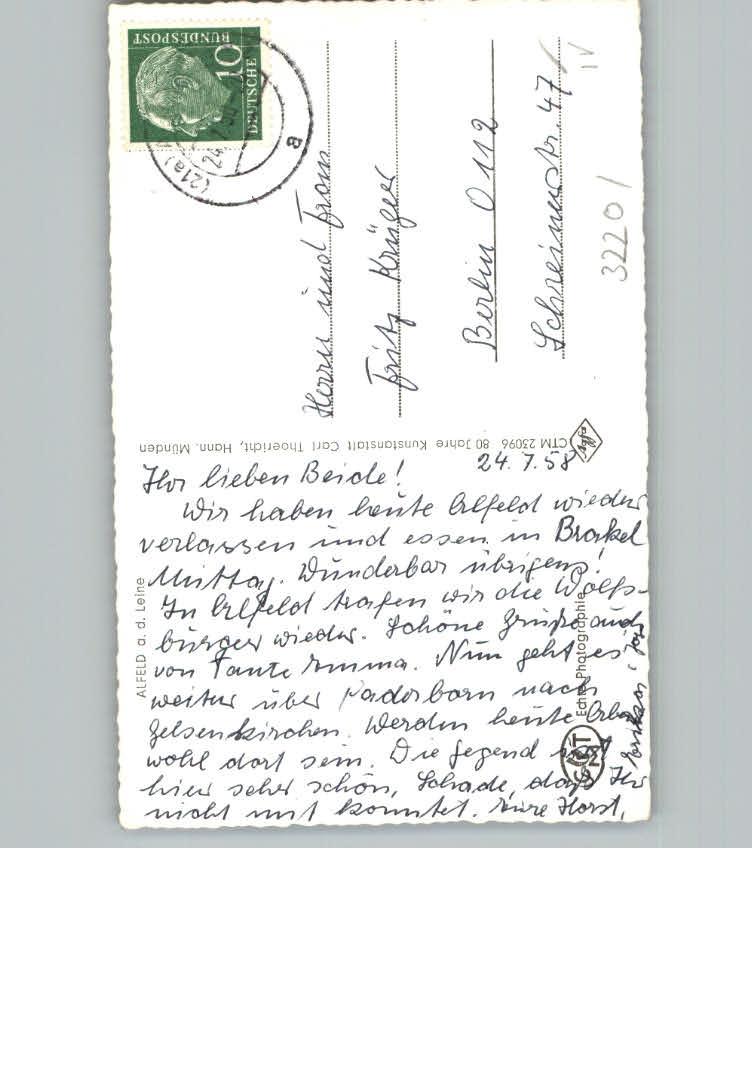 24. 7. 58
Ihr lieben Beide!
Wir haben heute Alfeld wieder
verlassen und essen in Brakel
Mittag. Wunderbar übrigens!
In Alfeld trafen wir die Wolfs-
burger wieder. Schöne Grüße auch
von Tante Emma. Nun geht es
weiter über Paderborn nach
Gelsenkirchen. Werden heute Abend
wohl dort sein. Die Gegend ist
hier sehr schön. Schade, daß Ihr
nicht mit konntet. Eure Horst,
Erika
Herrn und Frau
Fritz Krüger
Berlin O 112
Schreinerstr. 47
IV
32201
ALFELD a. d. Leine
Echte Photographie
CTM 23096 80 Jahre Kunstanstalt Carl Thoericht, Hann. Münden
Agfa
DEUTSCHE
BUNDESPOST
10
(21a)
24.
a